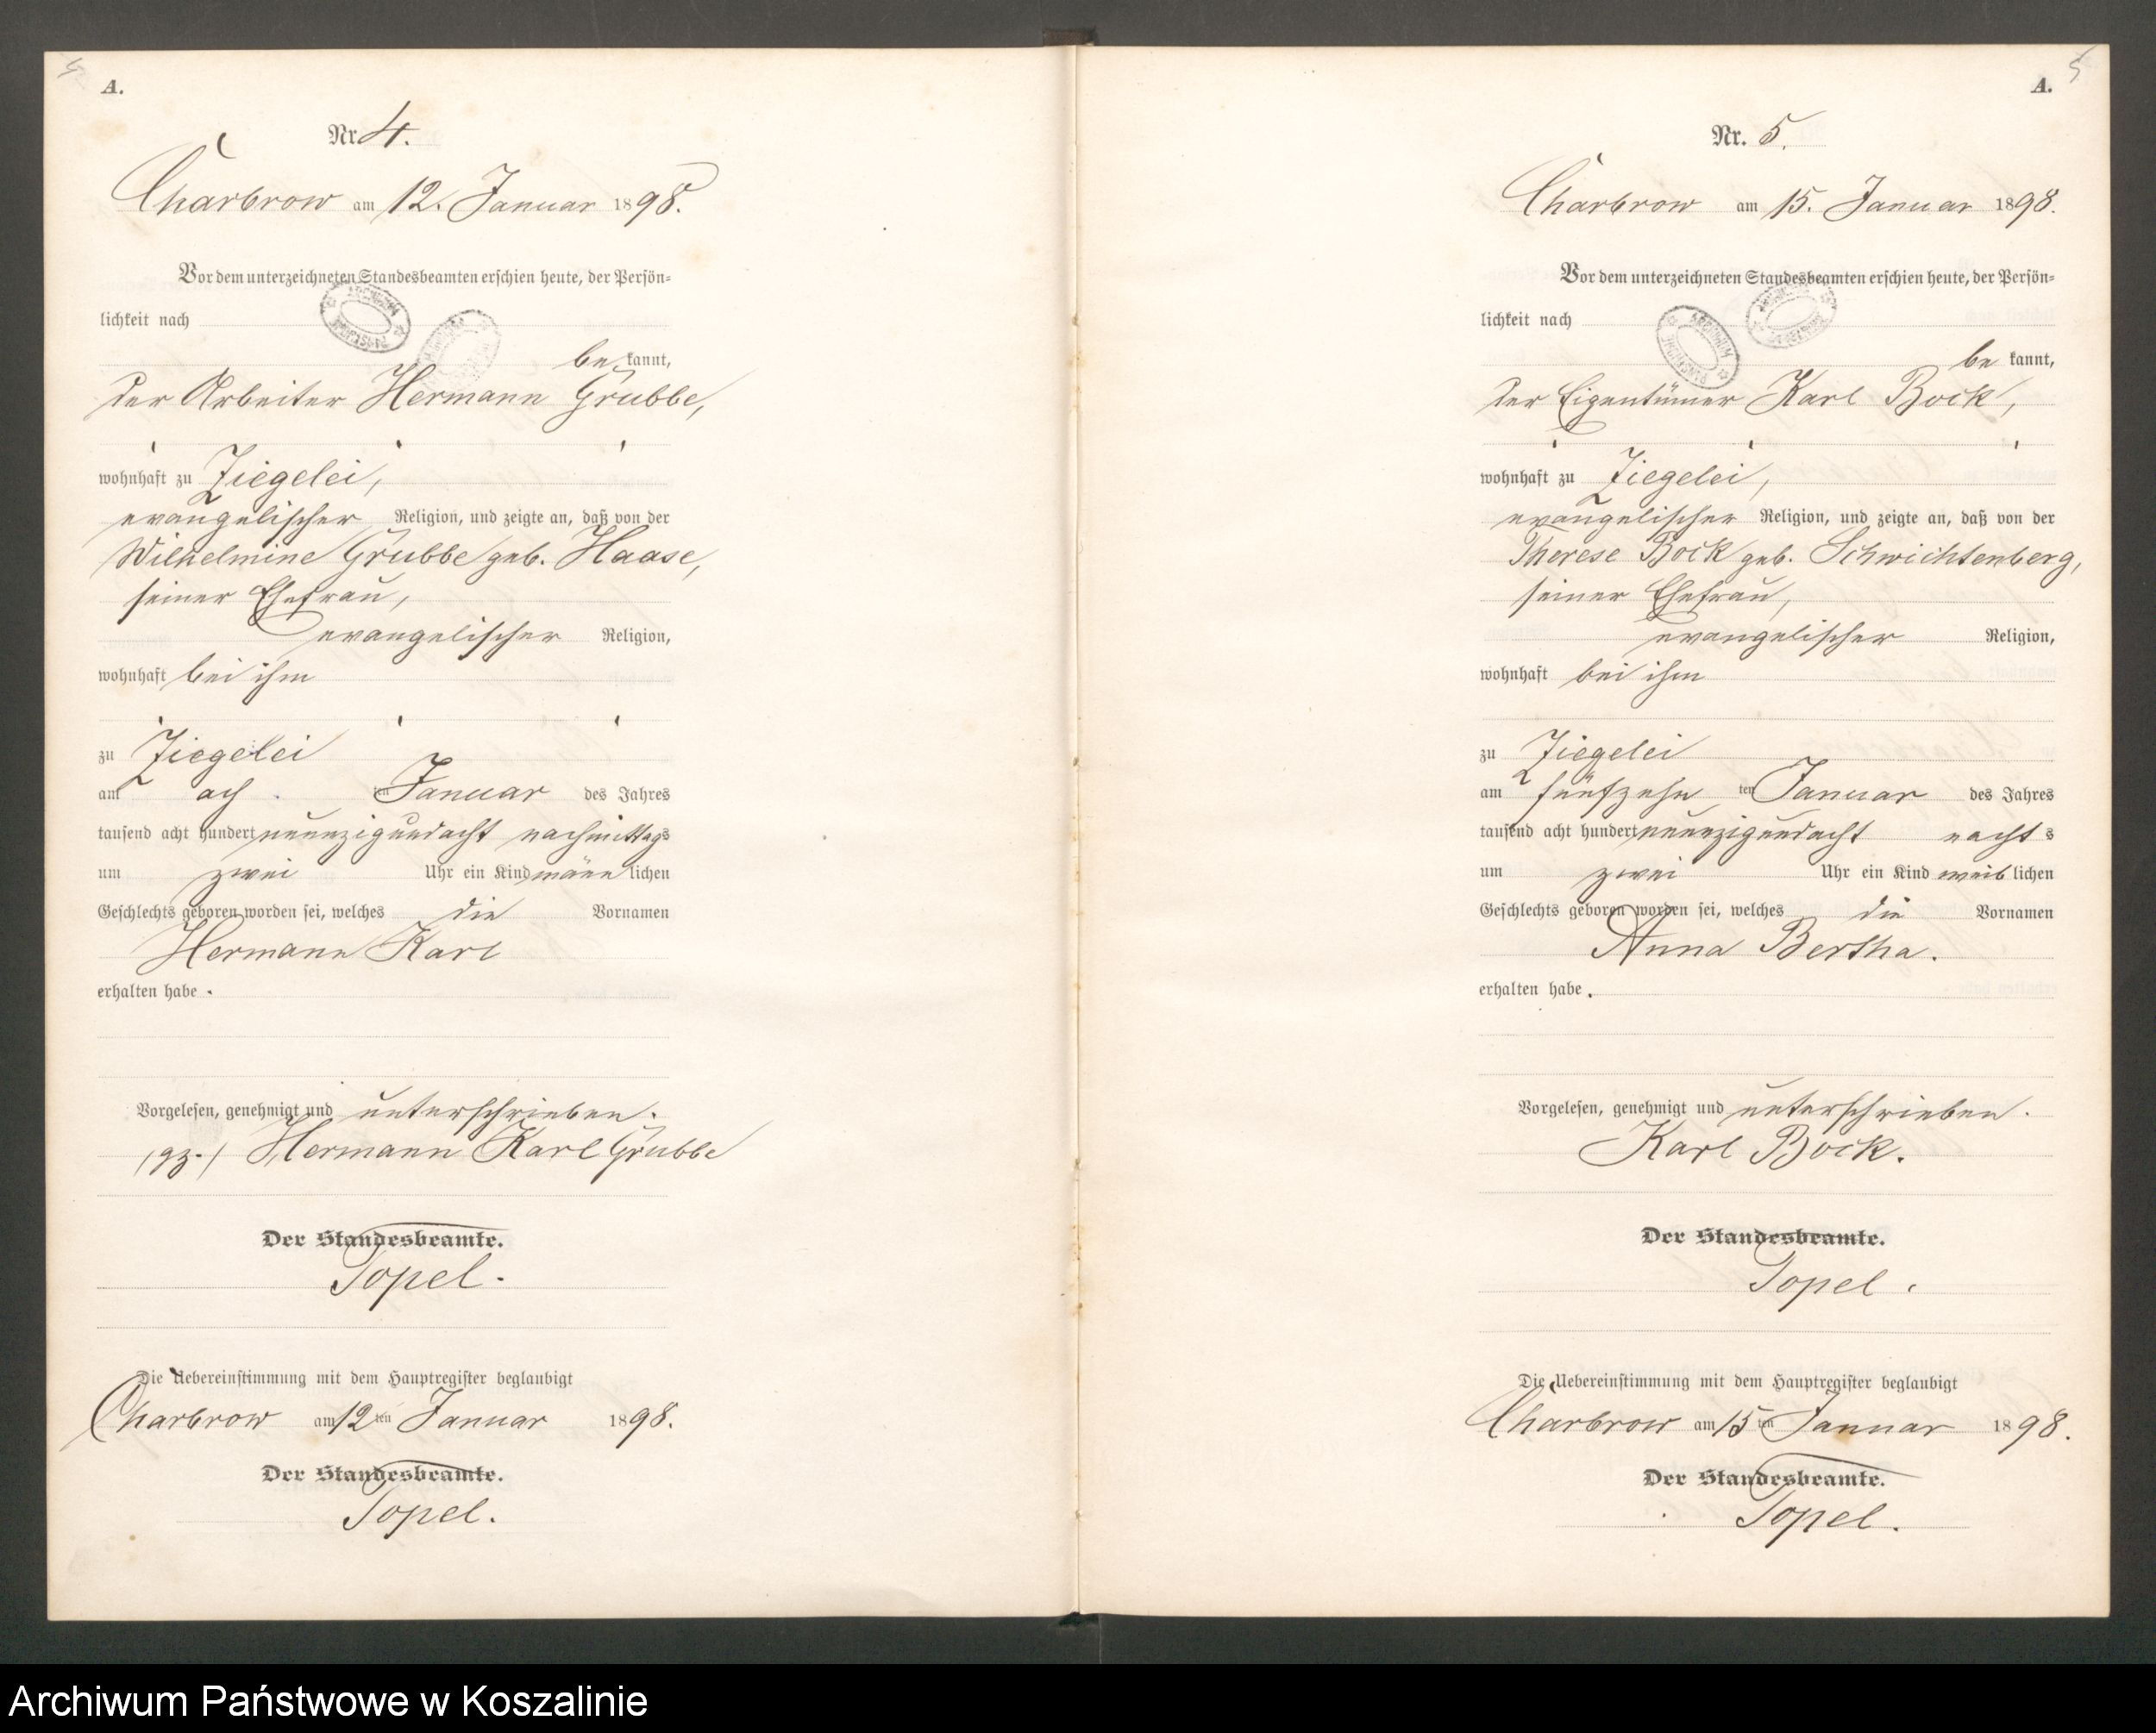 4
A.
Nr. 4.
Charbrow am 12. Januar 1898.
Vor dem unterzeichneten Standesbeamten erschien heute, der Persön-
lichkeit nach
be kannt,
der Arbeiter Hermann Grubbe,
wohnhaft zu Ziegelei,
evangelischer Religion, und zeigte an, daß von der
Wilhelmine Grubbe geb. Haase,
seiner Ehefrau,
evangelischer Religion,
wohnhaft bei ihm
zu Ziegelei
am ach ten Januar des Jahres
tausend acht hundert neunzigundacht nachmittags
um zwei Uhr ein Kind männ lichen
Geschlechts geboren worden sei, welches die Vornamen
Hermann Karl
erhalten habe.
Vorgelesen, genehmigt und unterschrieben.
/gz./ Hermann Karl Grubbe
Der Standesbeamte.
Topel.
Die Uebereinstimmung mit dem Hauptregister beglaubigt
Charbrow am 12 ten Januar 1898.
Der Standesbeamte.
Topel.
5
A.
Nr. 5.
Charbrow am 15. Januar 1898.
Vor dem unterzeichneten Standesbeamten erschien heute, der Persön-
lichkeit nach
be kannt,
der Eigentümer Karl Bock,
wohnhaft zu Ziegelei,
evangelischer Religion, und zeigte an, daß von der
Therese Bock geb. Schwichtenberg,
seiner Ehefrau,
evangelischer Religion,
wohnhaft bei ihm
zu Ziegelei
am fünfzehn ten Januar des Jahres
tausend acht hundert neunzigundacht nacht s
um zwei Uhr ein Kind weib lichen
Geschlechts geboren worden sei, welches die Vornamen
Anna Bertha.
erhalten habe.
Vorgelesen, genehmigt und unterschrieben.
Karl Bock.
Der Standesbeamte.
Topel.
Die Uebereinstimmung mit dem Hauptregister beglaubigt
Charbrow am 15 ten Januar 1898.
Der Standesbeamte.
Topel.
Archiwum Państwowe w Koszalinie